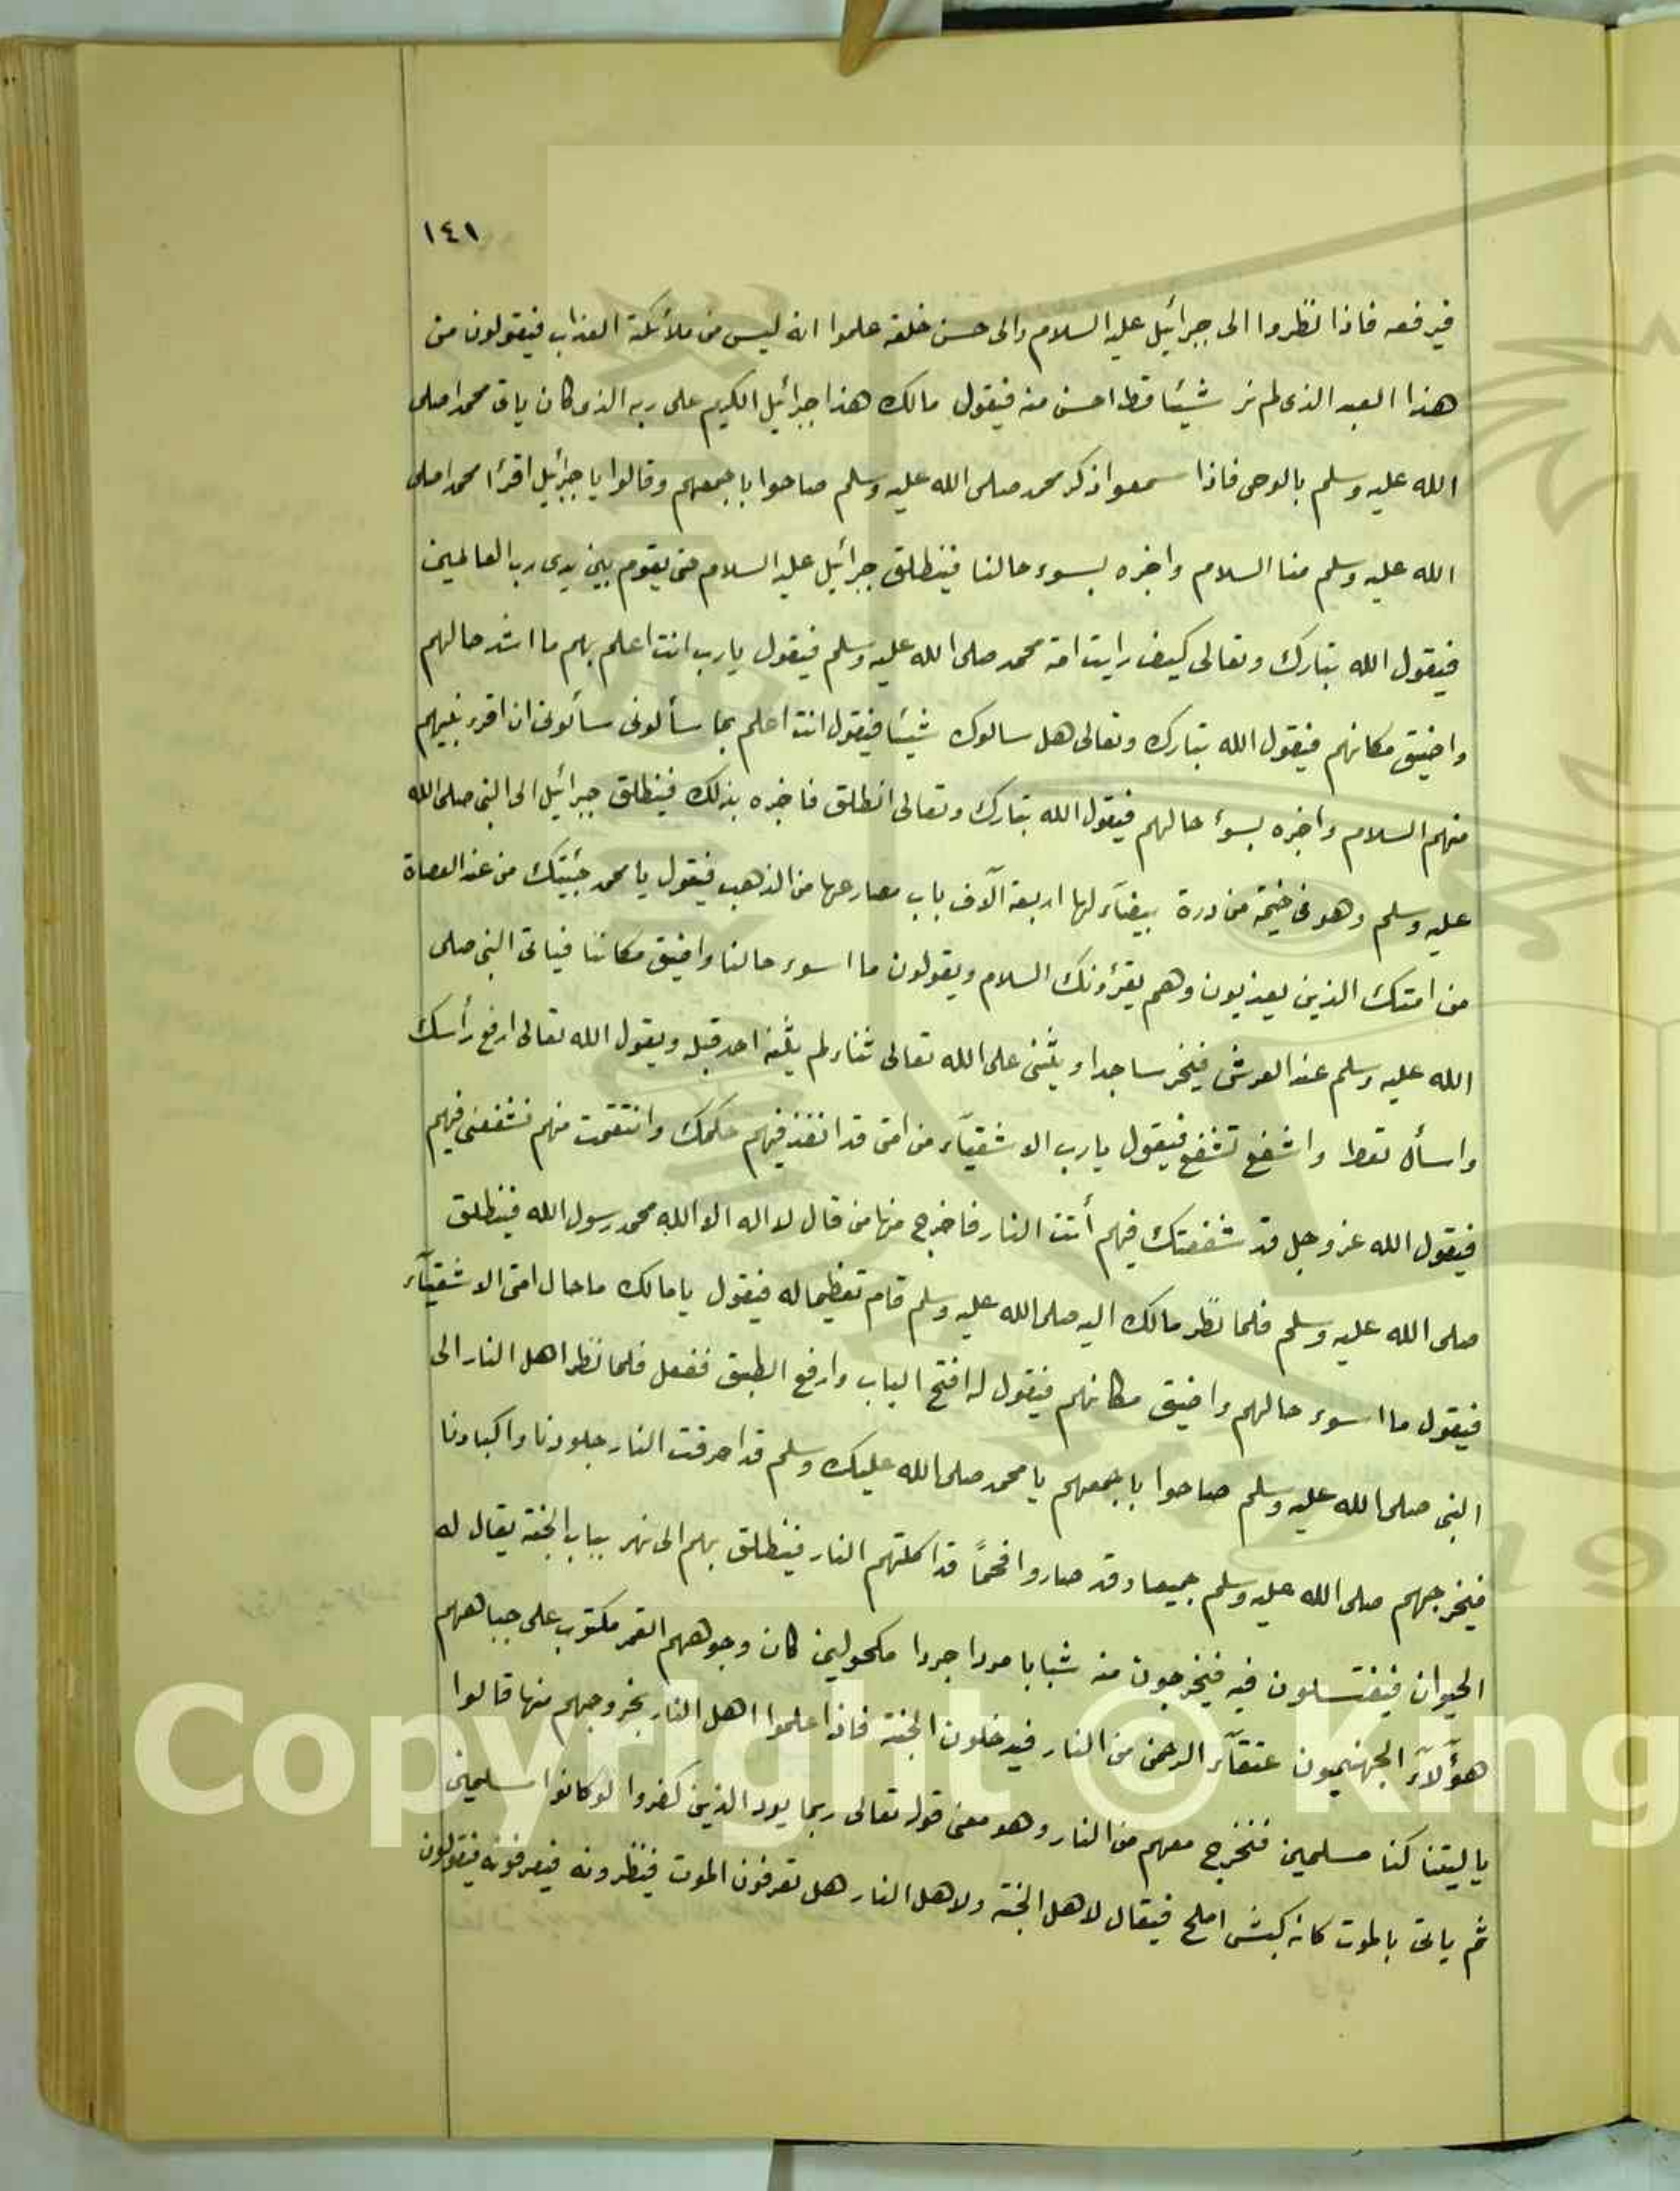 ١٤١
فيرفعه فاذا نظروا الى جبرائيل عليه السلام والى حسن خلقه علموا انه ليس من ملائكة العذاب فيقولون من
هذا العبد الذى لم نر شيئا قط احسن منه فيقول مالك هذا جبرائيل الكريم على ربه الذى كان ياتى محمدا صلى
الله عليه وسلم بالوحى فاذا سمعوا ذكر محمد صلى الله عليه وسلم صاحوا باجمعهم وقالوا يا جبرائيل اقرأ محمدا صلى
الله عليه وسلم منا السلام واخبره بسوء حالنا فينطلق جبرائيل عليه السلام حتى يقوم بين يدى رب العالمين
فيقول الله تبارك وتعالى كيف رايت امة محمد صلى الله عليه وسلم فيقول يارب انت اعلم بهم ما اشد حالهم
واضيق مكانهم فيقول الله تبارك وتعالى هل سالوك شيئا فيقول انت اعلم بما سألونى سألونى ان اقرء نبيهم
منهم السلام واخبره بسوء حالهم فيقول الله تبارك وتعالى انطلق فاخبره بذلك فينطلق جبرائيل الى النبى صلى الله
عليه وسلم وهو فى خيمة من درة بيضآء لها اربعة آلآف باب مصارعها من الذهب فيقول يا محمد جئيتك من عند العصاة
من امتك الذين يعذبون وهم يقرؤنك السلام ويقولون ما اسوء حالنا واضيق مكاننا فياتى النبى صلى
الله عليه وسلم عند العرش فيخر ساجدا ويثنى على الله تعالى ثناء لم يثنه احد قبله ويقول الله تعالى ارفع رأسك
واسأل تعط واشفع تشفع فيقول يارب الاشقيآء من امتى قد انفذ فيهم حكمك وانتقمت منهم فشفعنى فيهم
فيقول الله عز وجل قد شفعتك فيهم أتت النار فاخرج منها من قال لا اله الا الله محمد رسول الله فينطلق
صلى الله عليه وسلم فلما نظر مالك اليه صلى الله عليه وسلم قام تعظيما له فيقول يا مالك ما حال امتى الاشقيآء
فيقول ما اسوء حالهم واضيق مكانهم فيقول له افتح الباب وارفع الطبق ففعل فلما نظر اهل النار الى
النبى صلى الله عليه وسلم صاحوا باجمعهم يا محمد صلى الله عليك وسلم قد احرقت النار جلودنا واكبادنا
فيخرجهم صلى الله عليه وسلم جميعا وقد صاروا فحمًا قد اكلتهم النار فينطلق بهم الى نهر بباب الجنة يقال له
الحيوان فيغتسلون فيه فيخرجون منه شبابا مردا جردا مكحولين كان وجوههم القمر مكتوب على جباههم
هؤلآء الجهنميون عتقآء الرحمن من النار فيدخلون الجنة فاذا علموا اهل النار بخروجهم منها قالوا
يا ليتنا كنا مسلمين فنخرج معهم من النار وهو معنى قوله تعالى ربما يود الذين كفروا لو كانوا مسلمين
ثم ياتى بالموت كانه كبش املح فيقال لاهل الجنة ولاهل النار هل تعرفون الموت فينظرونه فيعرفونه فيقولون
Copyright © King